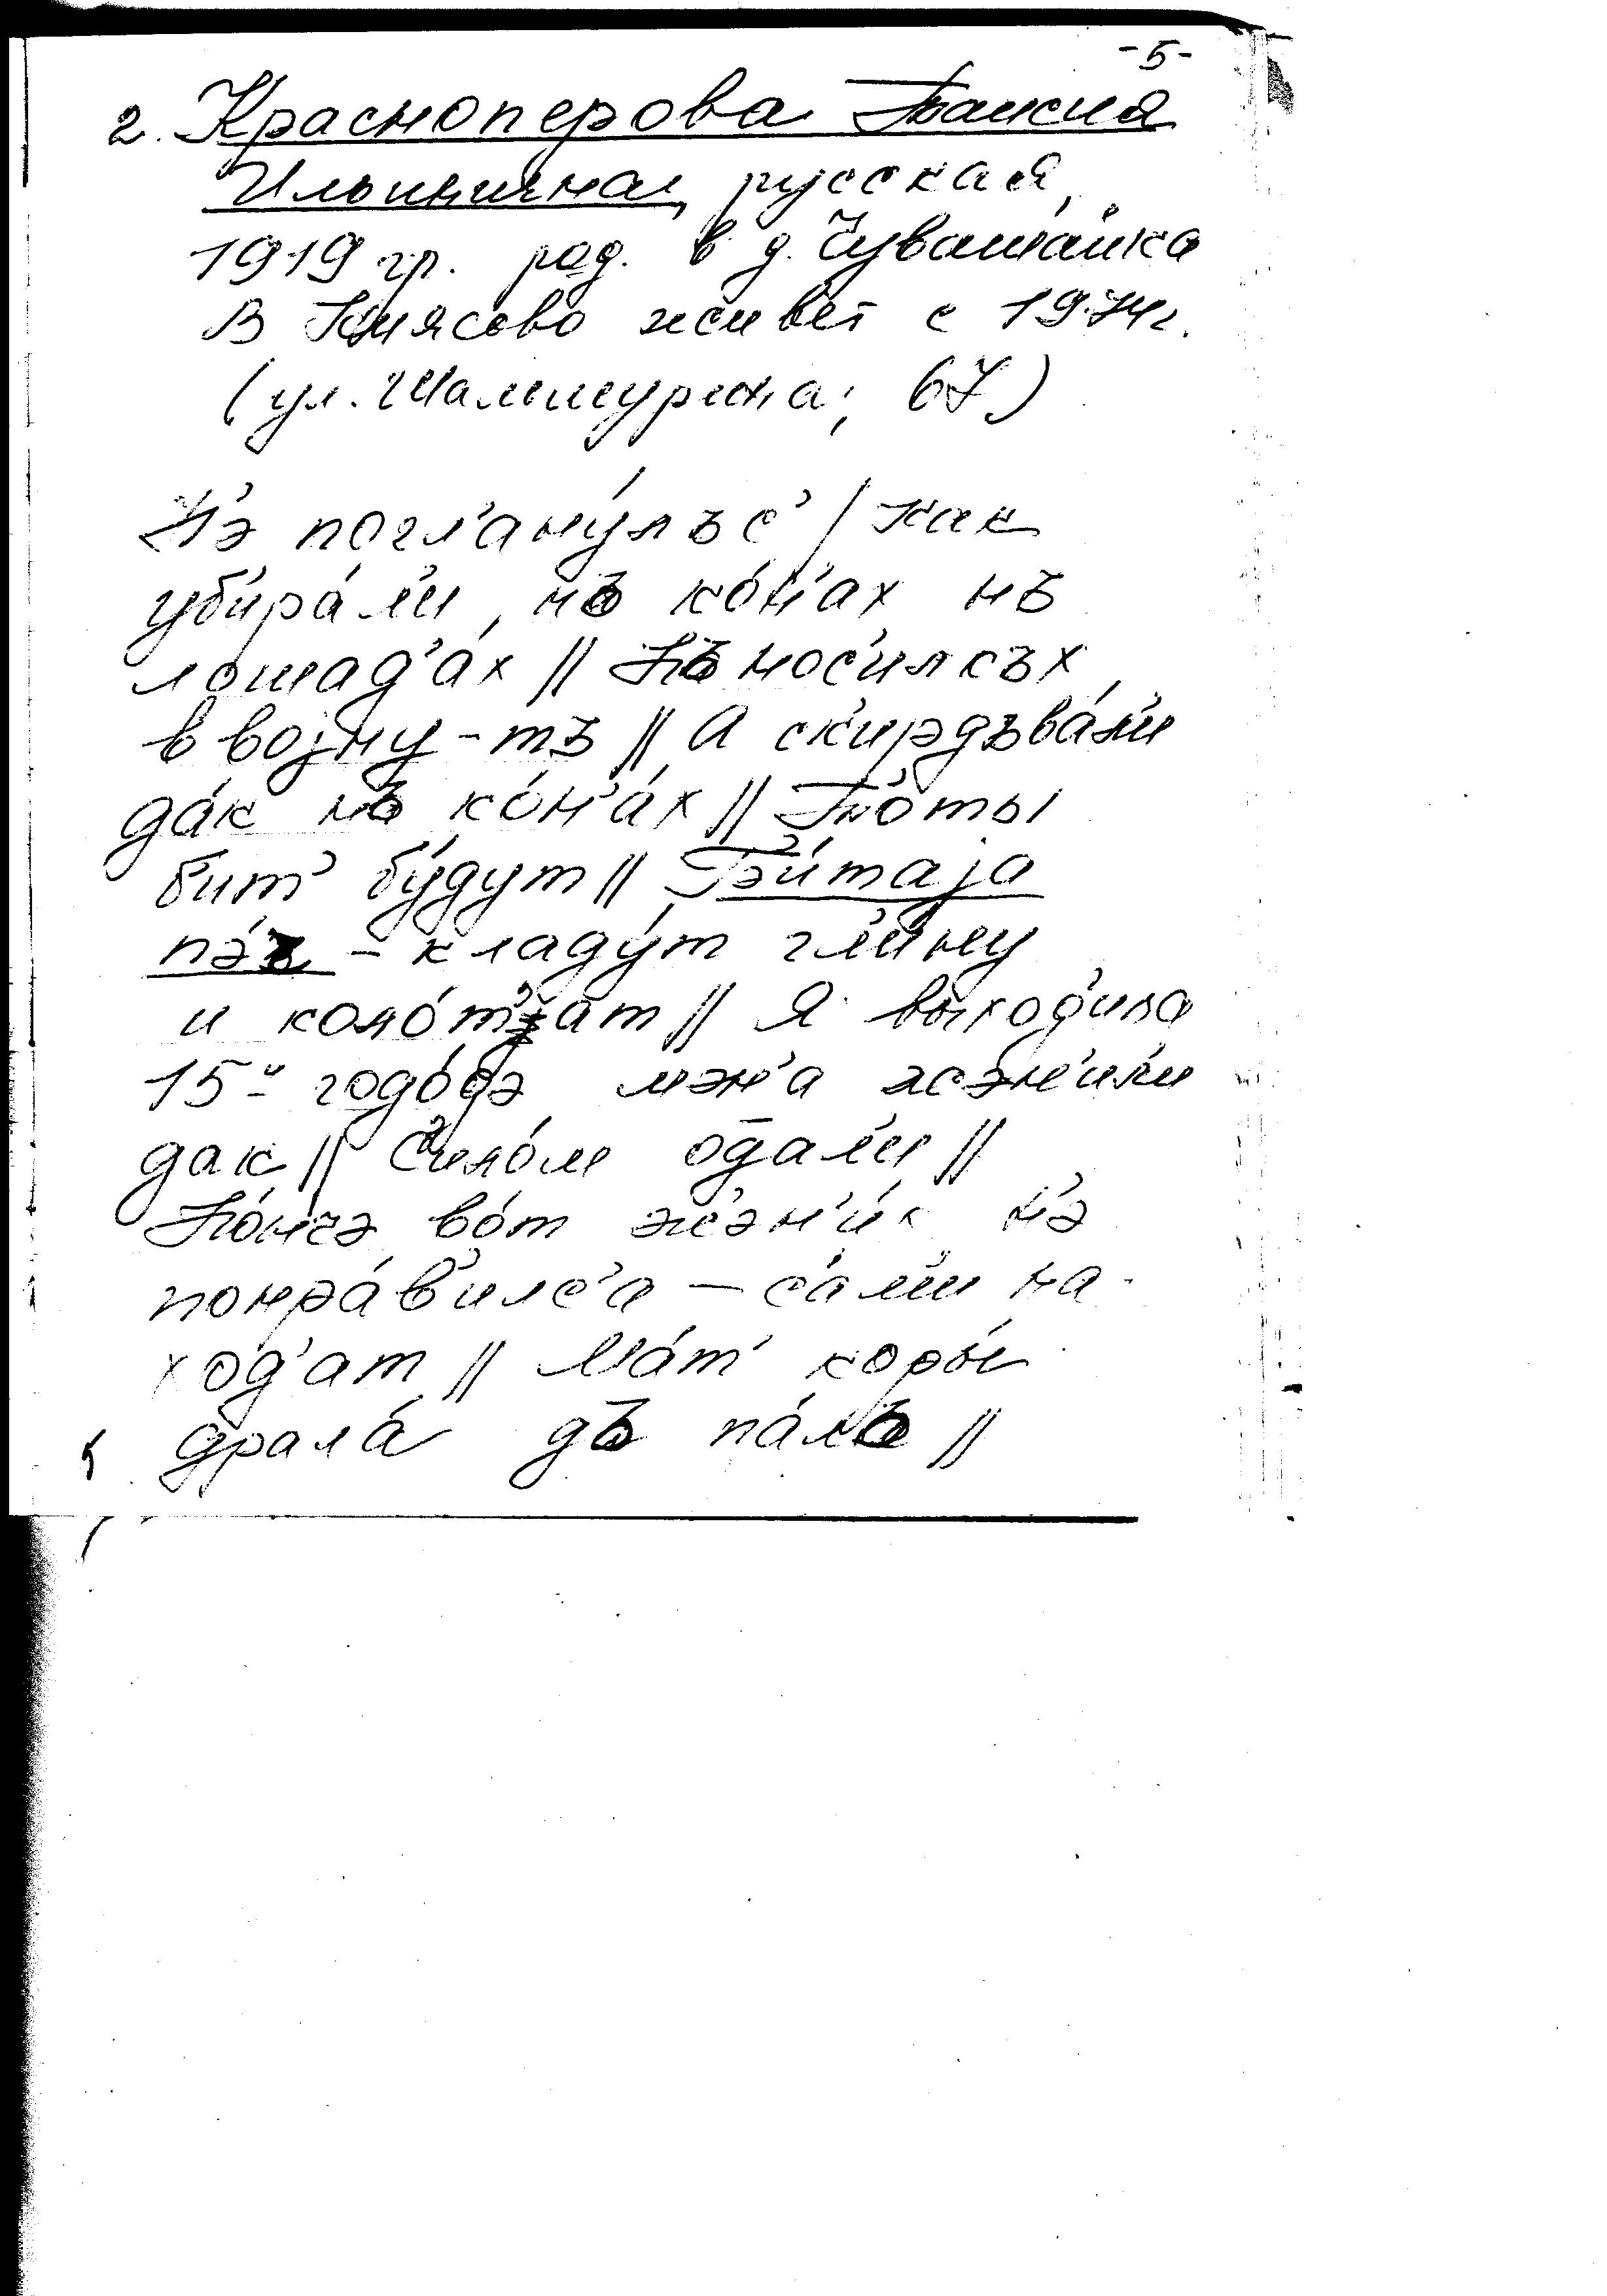 -5-
2. Красноперова Таисия
Ильинична, русская,
1919 гр. род. в д. Чувашайка
В Киясово живет с 1974г.
(ул. Шамшурина, 67)
Н'э погл'ану́лъс' / как
уб'ира́л'и, нъ ко́н'ах нъ
лошад'а́х // Нъ нос'илкъх
в војну-тъ // А ск'ирдъва́л'и
да́к нъ ко́н'а́х //
б'ит' бу́дут // Б'и́таја
п'э́ч – кладу́т гл'и́ну
и коло́т'ат // Я выход'ила
15-и годо́в м'эн'а жэн'ил'и
дак // С'ило́м одал'и //
Но́нч'э во́т жэн'и́х н'э
понра́в'илс'а – са́м'и на-
ход'ат // Ма́т' коры́
драла́ дъ